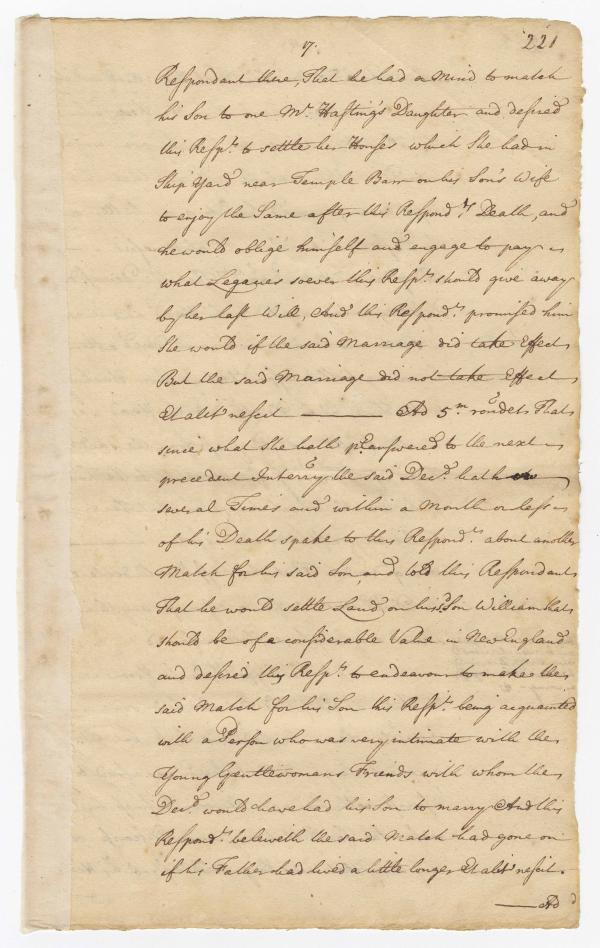 7. 221
Respondant there, That he had a Mind to match
his Son to one Mr. Hasting's Daughter and desired
this Respt. to settle her Houses which She had in
Ship Yard near Temple Barr on his Son's Wife
to enjoy the Same after this Respond.ts Death, and
he would oblige himself and engage to pay
what Legacies soever this Respt. should give away
by her last Will, And this Respond.t promised him
She would if the said Marriage did take Effect
But the said Marriage did not take Effect
Et alit' nescit ——— Ad 5.m rondet That
since what She hath p answered to the next
precedent Interry the said Decd. hath
several Times and within a Month or less
of his Death spake to this Respond.t about another
Match for his said Son, and told this Respondant
That he would settle Land on his Son William that
should be of a considerable Value in New England
and desired this Respt. to endeavour to make the
said Match for his Son this Respt. being acquainted
with a Person who was very intimate with the
Young Gentlewomans Friends with whom the
Decd. would have had his Son to marry And this
Respond.t beleiveth the said Match had gone on
if his Father had lived a little longer Et alit' nescit.
—— Ad